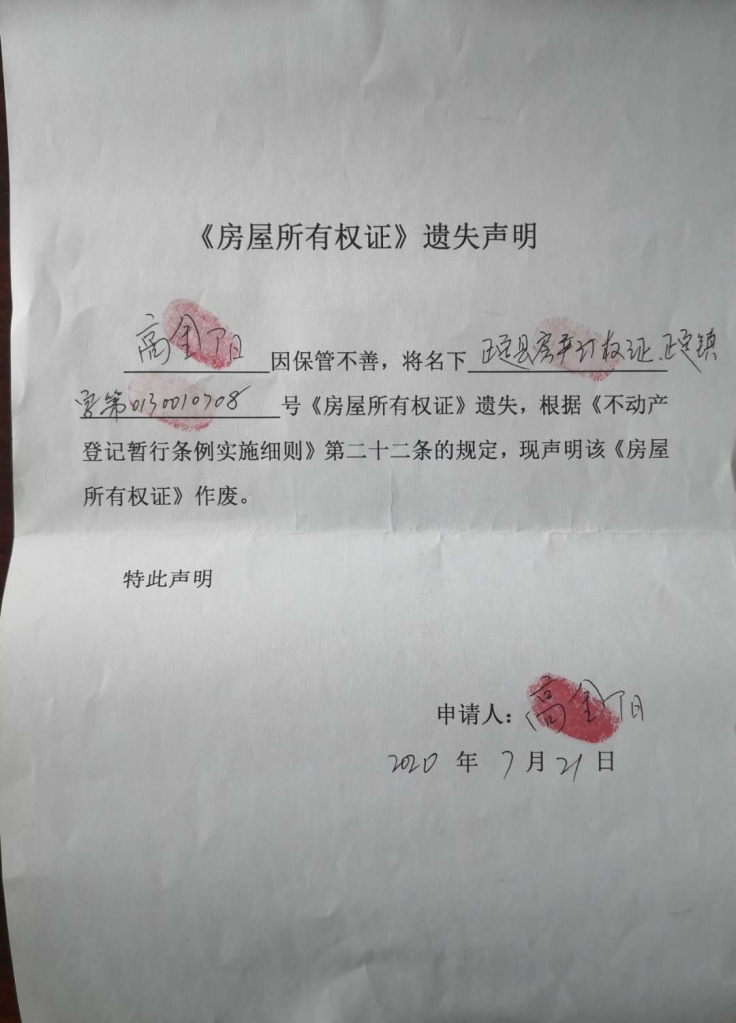 《房屋所有权证》遗失声明
高金阳因保管不善，将名下正定县房产证权证.正定镇
字第0130010708号《房屋所有权证》遗失，根据《不动产
登记暂行条例实施细则》第二十二条的规定，现声明该《房屋
所有权证》作废。
特此声明
申请人：高金阳
2020年7月21日